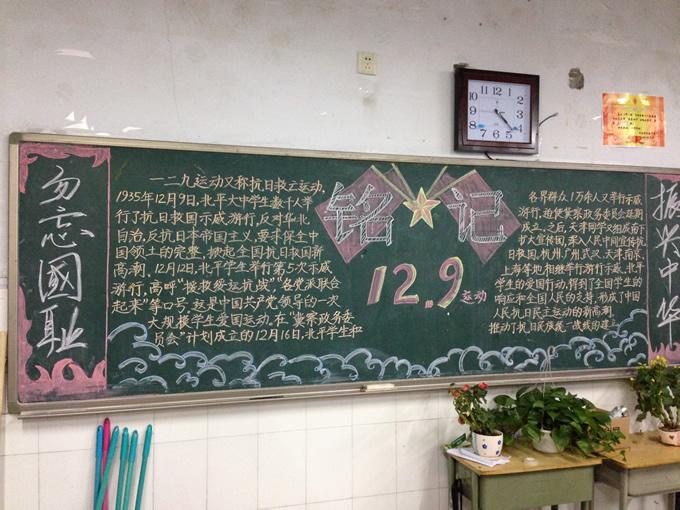 勿忘國耻
一二九运动又称抗日救亡运动,
1935年12月9日,北平大中学生数千人举
行了抗日救国示威游行,反对华北
自治,反抗日本帝国主义,要求保全中
国领土的完整,掀起全国抗日救国新
高潮。12月12日,北平学生举行第5次示威
游行,高呼“援救绥远抗战”“各党派联合
起来”等口号,这是中国共产党领导的一次
大规模学生爱国运动。在“冀察政务委
员会”计划成立的12月16日,北平学生和
铭记
12.9运动
各界群众1万余人又举行示威
游行,迫使冀察政务委员会延期
成立。之后,天津同学又组成南下
扩大宣传团,深入人民中间宣传抗
日救国,杭州,广州,武汉,天津,南京,
上海等地相继举行游行示威。北平
学生的爱国行动,得到了全国学生的
响应和全国人民的支持,形成了中国
人民抗日民主运动的新高潮,
推动了抗日民族统一战线的建立
振兴中华
12
1
2
3
4
5
6
7
8
9
10
11